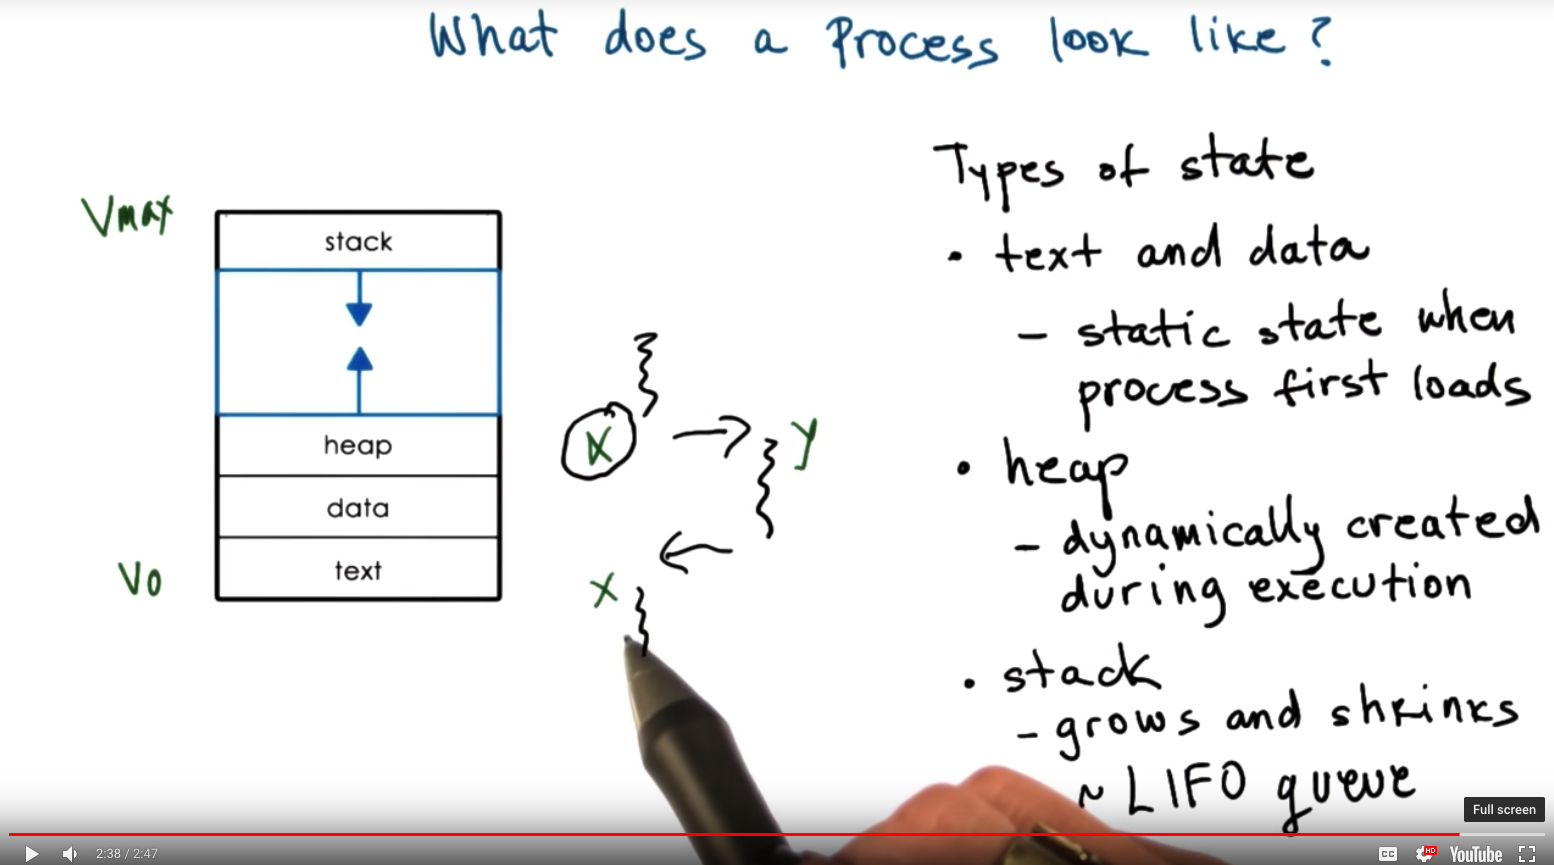 What does a Process look like?
Vmax
stack
heap
data
text
V0
X
y
X
Types of state
• text and data
– static state when
process first loads
• heap
– dynamically created
during execution
• stack
– grows and shrinks
~ LIFO queue
Full screen
2:38 / 2:47
CC
HD
YouTube